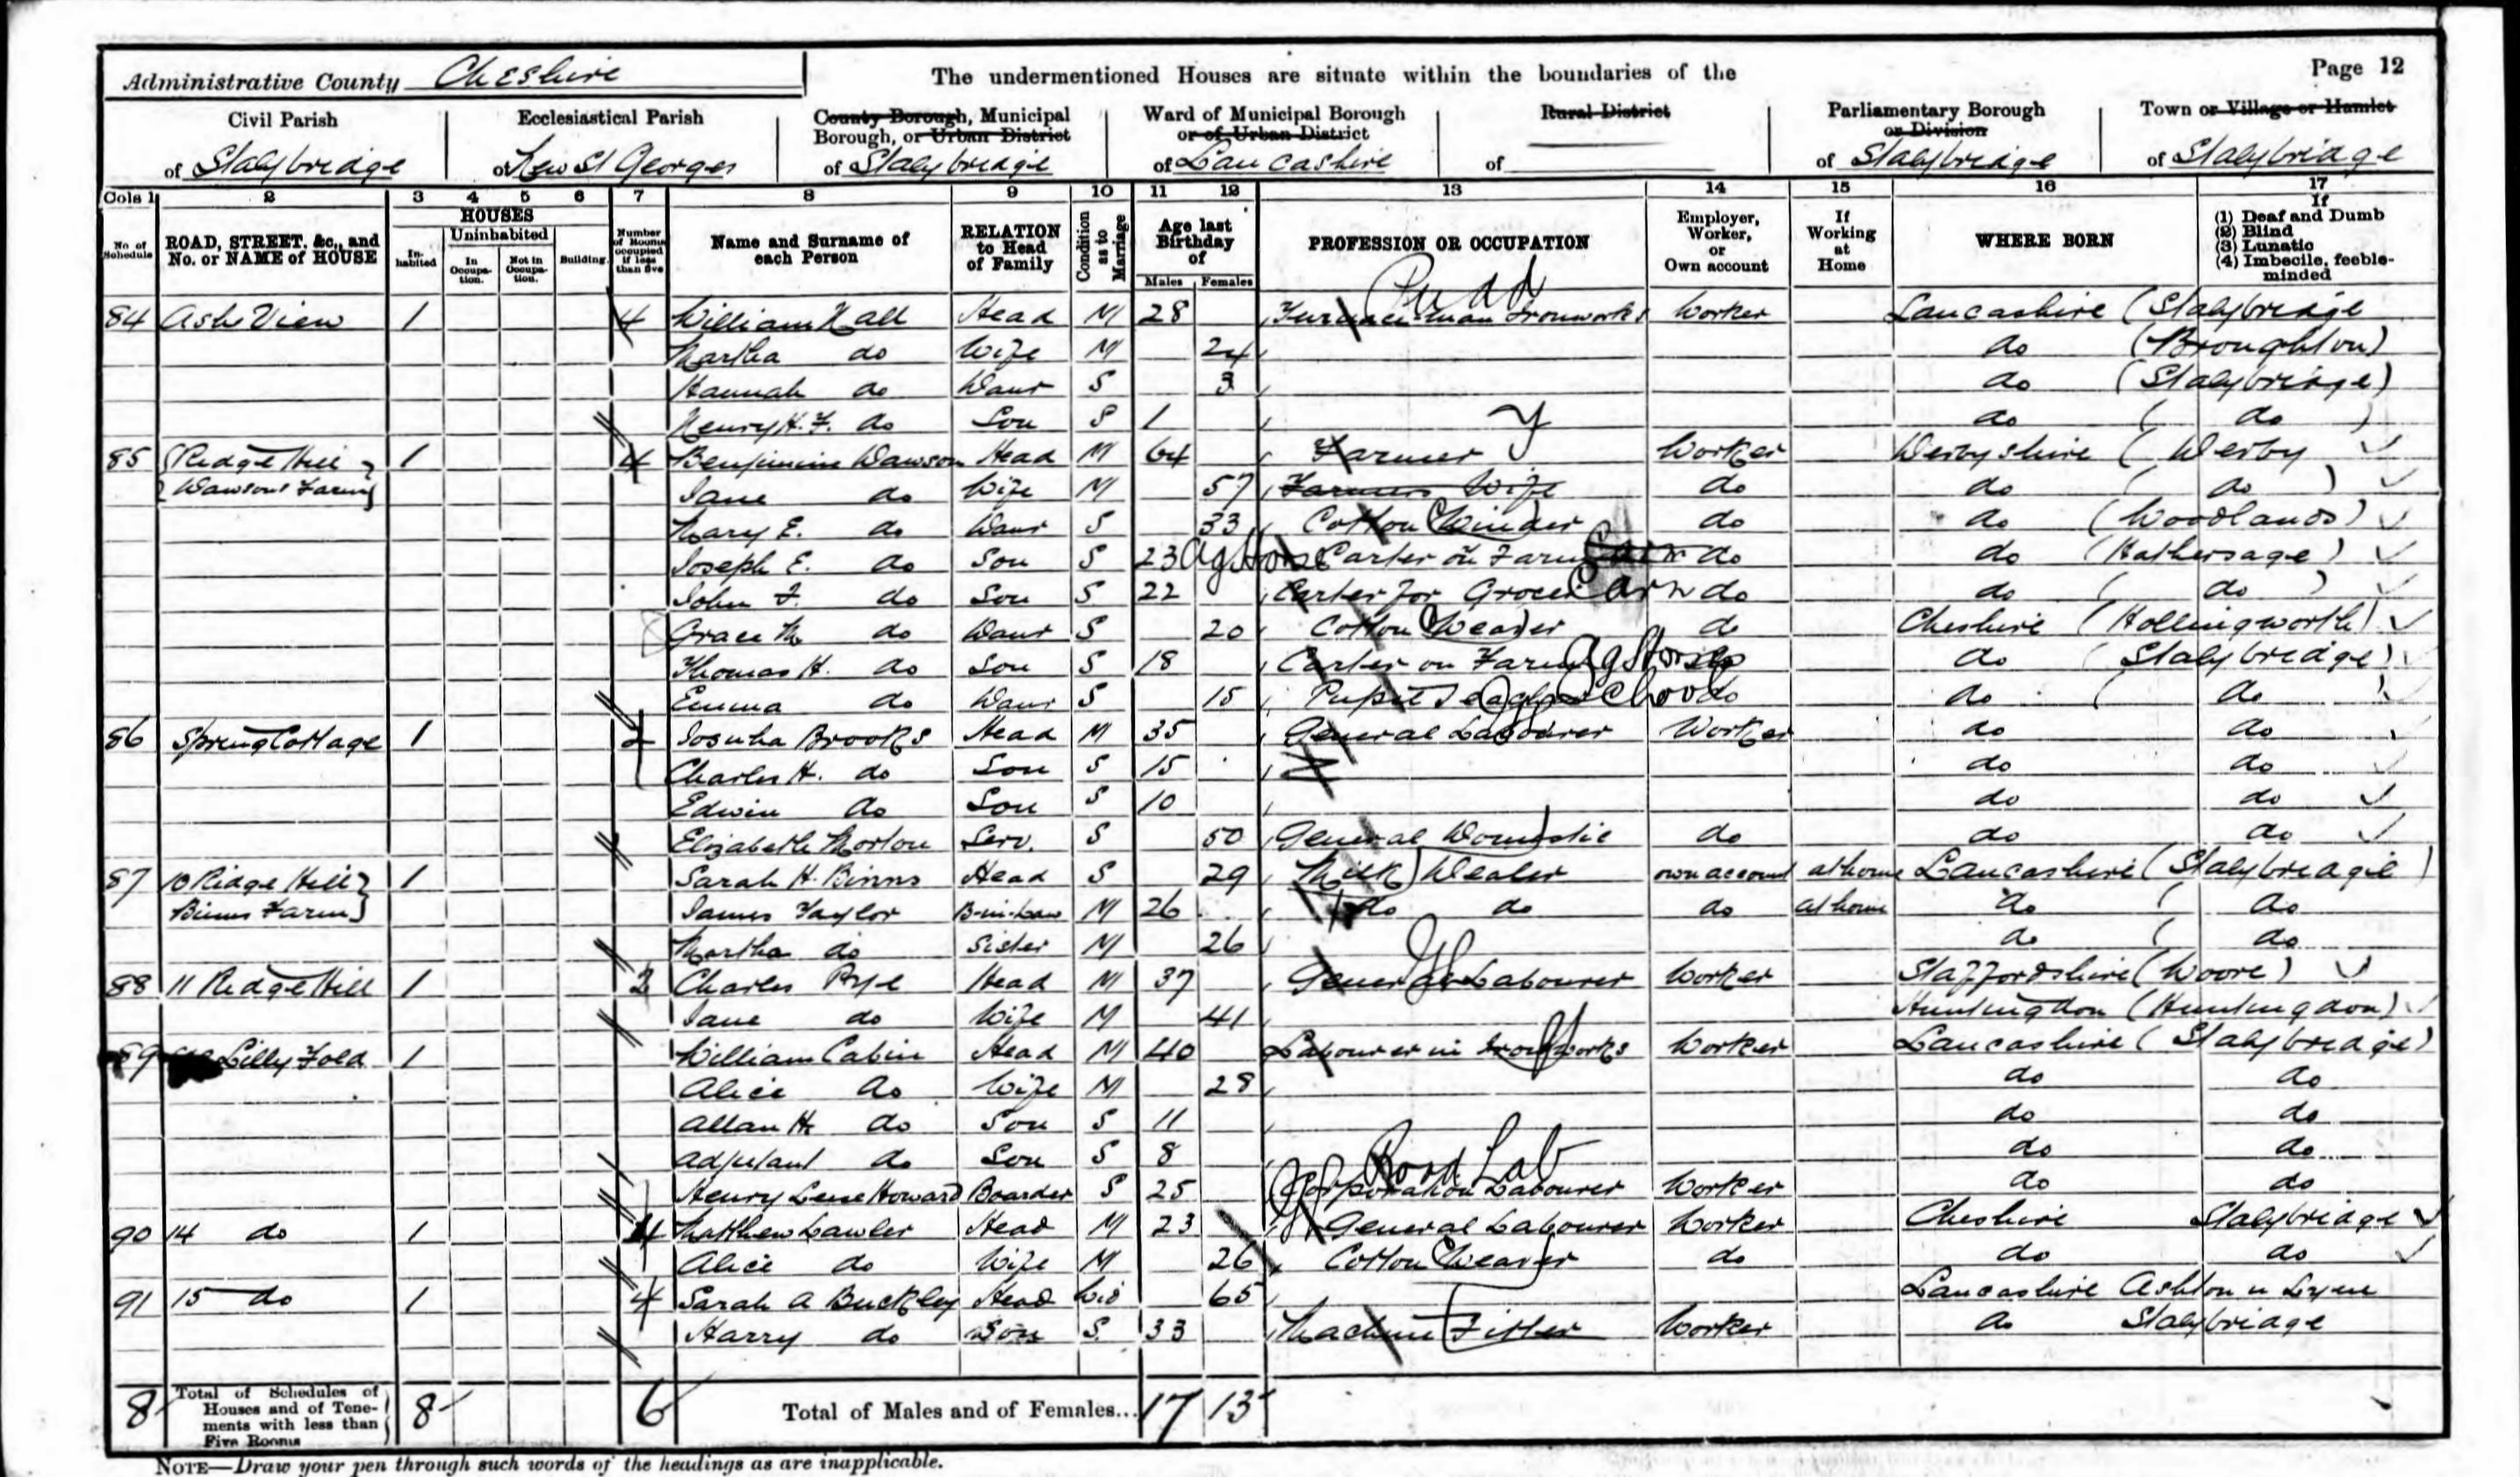 Administrative County Cheshire
The undermentioned Houses are situate within the boundaries of the
Page 12
Civil Parish of Stalybridge
Ecclesiastical Parish of New St Georges
County Borough, Municipal Borough, or Urban District of Stalybridge
Ward of Municipal Borough or of Urban District of Lancashire
Rural District of
Parliamentary Borough or Division of Stalybridge
Town or Village or Hamlet of Stalybridge
Cols 1 2 3 4 5 6 7 8 9 10 11 12 13 14 15 16 17
No. of Schedule
ROAD, STREET, &c., and No. or NAME of HOUSE
HOUSES
Inhabited
Uninhabited
In Occupation.
Not in Occupation.
Building.
Number of Rooms occupied if less than five
Name and Surname of each Person
RELATION to Head of Family
Condition as to Marriage
Age last Birthday of
Males Females
PROFESSION OR OCCUPATION
Employer, Worker, or Own account
If Working at Home
WHERE BORN
If (1) Deaf and Dumb (2) Blind (3) Lunatic (4) Imbecile, feeble-minded
Pudd
84 Ash View 1 4 William Hall Head M 28 Furnace man Ironworks Worker Lancashire (Stalybridge
Martha do Wife M 24 do (Broughton)
Hannah do Daur S 3 do (Stalybridge)
Henry H. F. do Son S 1 do ( do )
85 Ridge Hill Dawsons Farm 1 4 Benjimine Dawson Head M 64 Farmer Worker Derbyshire ( Derby
Jane do Wife M 57 Farmers Wife do do ( do )
Mary E. do Daur S 33 Cotton Winder do do (Woodlands)
Joseph E. do Son S 23 Ag Horse Carter on Farm do do (Hathersage)
John F. do Son S 22 Carter for Grocer Carn do do ( do )
Grace M do Daur S 20 Cotton Weaver do Cheshire (Hollingworth)
Thomas H. do Son S 18 Carter on Farm Ag Horse do do (Stalybridge)
Emma do Daur S 15 Pupil Teacher School do do ( do )
86 Spring Cottage 1 2 Josuha Brooks Head M 35 General Labourer Worker do do
Charles H. do Son S 15 do do
Edwin do Son S 10 do do
Elizabeth Morton Serv. S 50 General Domestic do do do
87 10 Ridge Hill Binns Farm 1 Sarah H. Binns Head S 29 Milk Dealer own account at home Lancashire (Stalybridge)
James Taylor B-in-Law M 26 do do do at home do ( do
Martha do Sister M 26 do ( do
88 11 Ridge Hill 1 2 Charles Pye Head M 37 General Labourer Worker Staffordshire (Woore)
Jane do Wife M 41 Huntingdon (Huntingdon)
89 Lilly Fold 1 William Cabin Head M 40 Labourer in Ironworks Worker Lancashire (Stalybridge)
Alice do Wife M 28 do do
Allan H. do Son S 11 do do
Adjutant do Son S 8 do do
Road Lab
Henry Howard Boarder S 25 Corporation Labourer Worker do do
90 14 do 1 4 Matthew Lawler Head M 23 General Labourer Worker Cheshire Stalybridge
Alice do Wife M 26 Cotton Weaver do do do
91 15 do 1 4 Sarah A Buckley Head Wid 65 Lancashire Ashton u Lyne
Harry do Son S. 33 Machine Fitter Worker do Stalybridge
8 Total of Schedules of Houses and of Tenements with less than Five Rooms 8 6 Total of Males and of Females... 17 13
NOTE—Draw your pen through such words of the headings as are inapplicable.